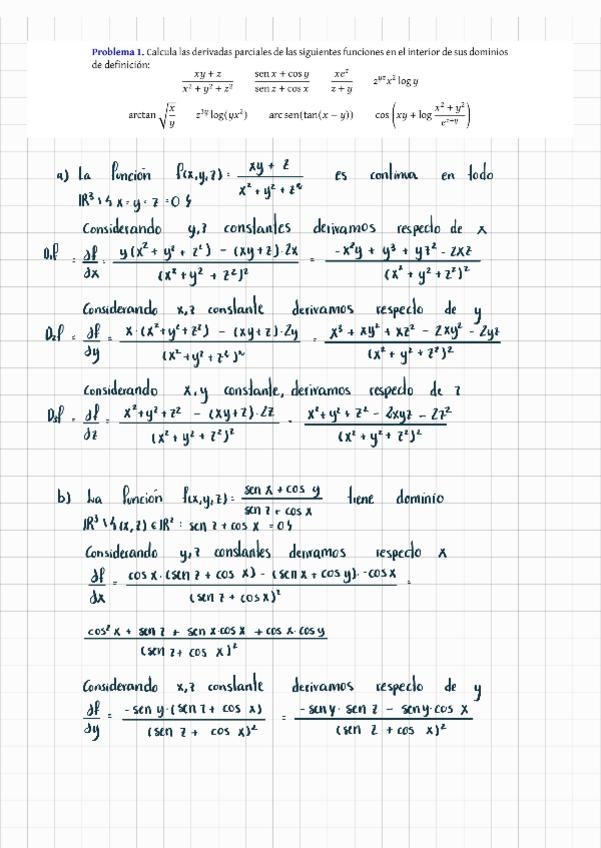 Problema 1. Calcula las derivadas parciales de las siguientes funciones en el interior de sus dominios
de definición:
\frac{xy + z}{x^2 + y^2 + z^2}   \frac{sen x + cos y}{sen z + cos x}   \frac{xe^z}{z + y}   z^{yz} x^2 log y
arctan \sqrt{\frac{x}{y}}   z^{3y} log(yx^2)   arc sen(tan(x − y))   cos \left( xy + log \frac{x^2 + y^2}{e^{z+y}} \right)
a) La función f(x,y,z) = \frac{xy + z}{x^2 + y^2 + z^2} es continua en todo
ℝ^3 \ { x = y = z = 0 }
Considerando y,z constantes derivamos respecto de x
D_1f = \frac{∂f}{∂x} = \frac{y(x^2 + y^2 + z^2) - (xy+z)·2x}{(x^2 + y^2 + z^2)^2} = \frac{-x^2y + y^3 + yz^2 - 2xz}{(x^2 + y^2 + z^2)^2}
Considerando x,z constante derivamos respecto de y
D_2f = \frac{∂f}{∂y} = \frac{x·(x^2+y^2+z^2) - (xy+z)·2y}{(x^2+y^2+z^2)^2} = \frac{x^3 + xy^2 + xz^2 - 2xy^2 - 2yz}{(x^2 + y^2 + z^2)^2}
Considerando x,y constante, derivamos respecto de z
D_3f = \frac{∂f}{∂z} = \frac{x^2+y^2+z^2 - (xy+z)·2z}{(x^2 + y^2 + z^2)^2} = \frac{x^2+y^2+z^2 - 2xyz - 2z^2}{(x^2 + y^2 + z^2)^2}
b) La función f(x,y,z) = \frac{sen x + cos y}{sen z + cos x} tiene dominio
ℝ^3 \ { (x,z) ∈ ℝ^2 : sen z + cos x = 0 }
Considerando y,z constantes derivamos respecto x
\frac{∂f}{∂x} = \frac{cos x·(sen z + cos x) - (sen x + cos y)·-cos x}{(sen z + cos x)^2} =
\frac{cos^2 x + sen z + sen x·cos x + cos x·cos y}{(sen z + cos x)^2}
Considerando x,z constante derivamos respecto de y
\frac{∂f}{∂y} = \frac{-sen y·(sen z + cos x)}{(sen z + cos x)^2} = \frac{-sen y· sen z - sen y·cos x}{(sen z + cos x)^2}